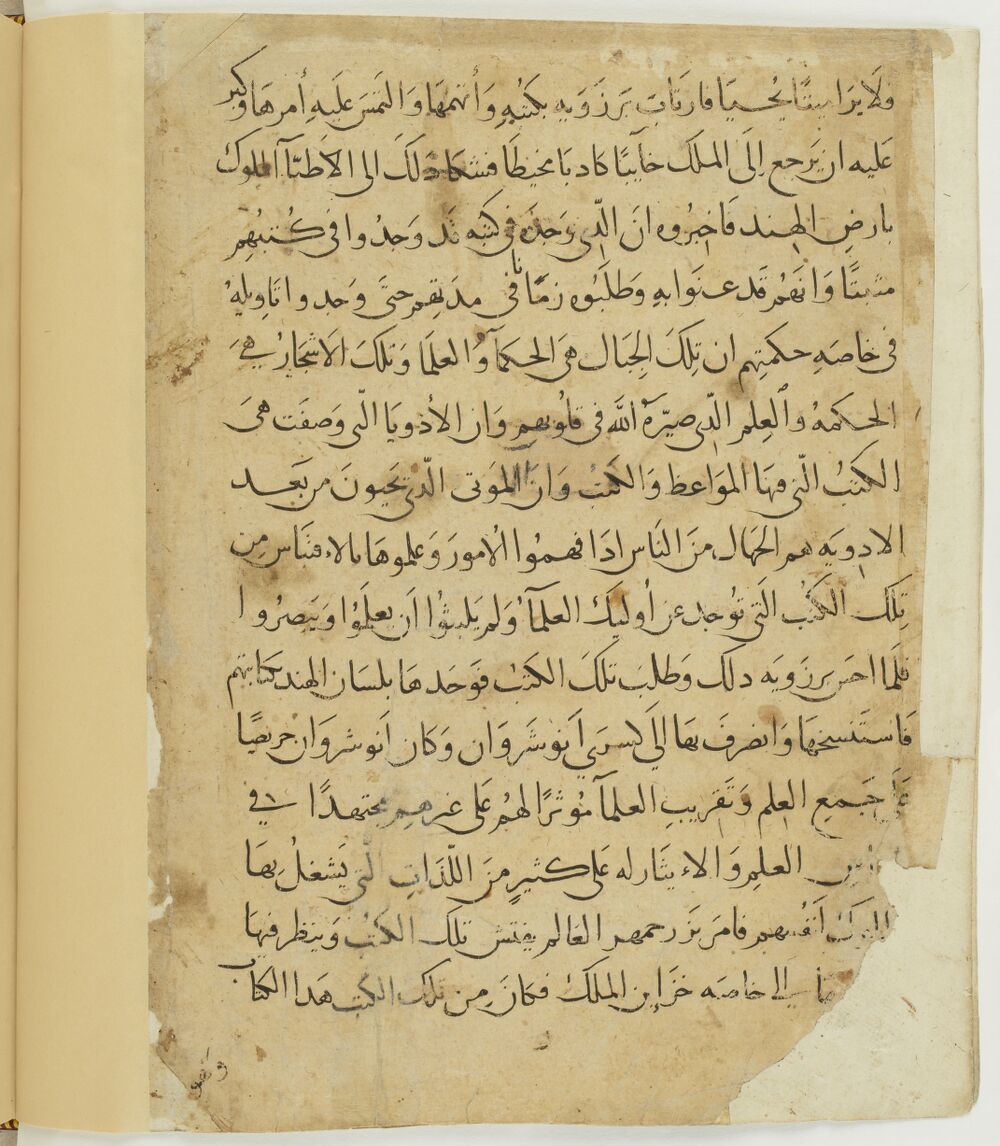 فلا يرا ميتًا يحيا فارتاب برزويه بكتبه وأتهمها والتمس عليه أمرها وكبر
عليه ان يرجع إلى الملك خايبًا كاذبا مخيطا فشكا ذلك الى الاطبّآ الملوك
بارض الهند فاخبروه ان الّذي وجده في كتبه قد وجدوا في كتبهم
مثبتًا وانهم قد عنوا به وطلبوه زمانا في مدتهم حتى وجدوا تاويله
في خاصه حكمتهم ان تلك الجبال هي الحكمآ والعلما وتلك الاشجار هي
الحكمه والعلم الّذي صيّره الله في قلوبهم وان الأدويا الّتي وصفت هي
الكتب الّتي فيها المواعظ والكتب وان الموتى الّذي يحيون من بعد
الادويه هم الجهال من الناس اذا فهموا الأمور وعلموها بالاقتباس من
تلك الكتب التي توجد عن أوليك العلمآ ولم يلبثوا أن يعلموا ويبصروا
فلما احس برزويه ذلك وطلب تلك الكتب فوجدها بلسان الهند كتابتهم
فاستنسخها وانصرف بها الى كسرى أنوشروان وكان أنوشروان حريصًا
على جميع العلم وتقريب العلمآ مُوثرًا لهم على غيرهم مجتهدًا في
العلم والايثار له على كثير من اللّذات الّتي يشغل بها
الملوك أنفسهم فامر بزرجمهر العالم يفتش تلك الكتب وينظر فيها
الى خاصه خزاين الملك فكان من تلك الكتب هذا الكتاب
وهو